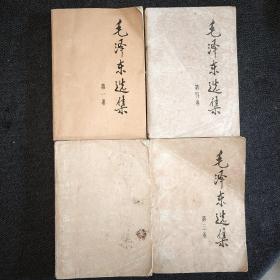 毛泽东选集
第一卷
毛泽东选集
第四卷
毛泽东选集
第三卷